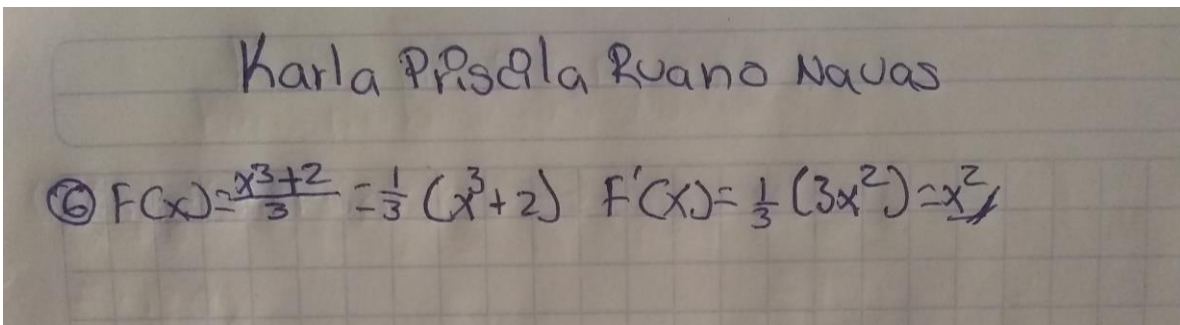 Karla Priscila Ruano Navas
⑥ F(x)=\frac{x^3+2}{3} = \frac{1}{3} (x^3+2) F'(x)= \frac{1}{3} (3x^2)=x^2